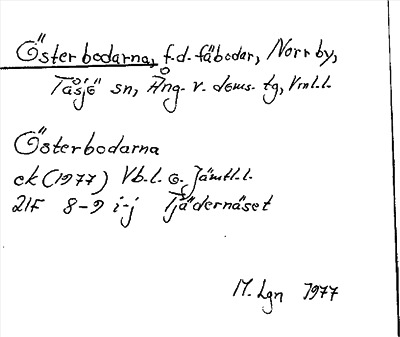 Österbodarna, f.d. fäbodar, Norrby,
Tåsjö sn, Ång. v. doms. tg, Vnl.l.
Österbodarna
ek (1977) Vb.l. o. Jämtl.l.
21F 8-9 i-j Tjädernäset
M. Lgn 1977